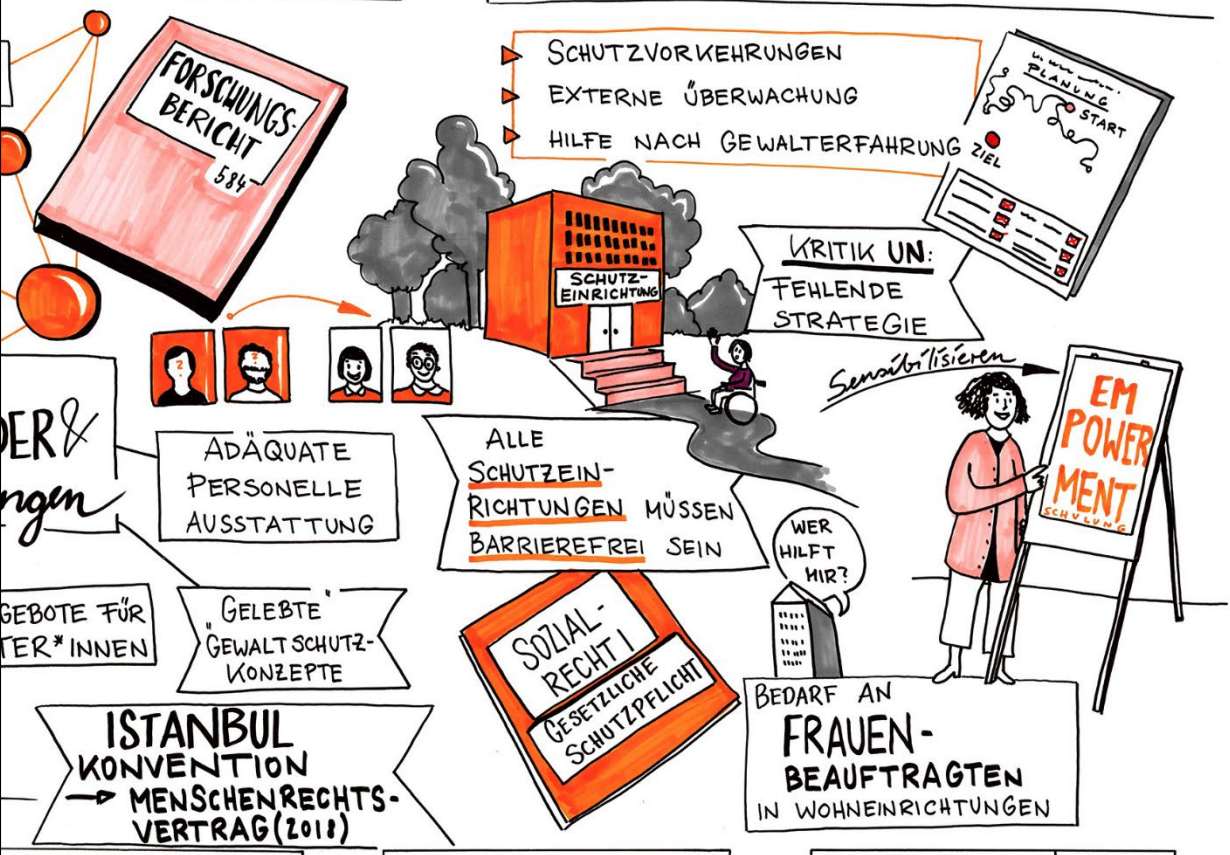 FORSCHUNGS-
BERICHT
584
SCHUTZVORKEHRUNGEN
EXTERNE ÜBERWACHUNG
HILFE NACH GEWALTERFAHRUNG
PLANUNG
START
ZIEL
SCHUTZ-
EINRICHTUNG
KRITIK UN:
FEHLENDE
STRATEGIE
Sensibilisieren
EM
POWER
MENT
SCHULUNG
DER &
ngen
ADÄQUATE
PERSONELLE
AUSSTATTUNG
ALLE
SCHUTZEIN-
RICHTUNGEN MÜSSEN
BARRIEREFREI SEIN
WER
HILFT
MIR?
GEBOTE FÜR
TER*INNEN
GELEBTE "
"GEWALTSCHUTZ-
KONZEPTE
SOZIAL-
RECHT I
GESETZLICHE
SCHUTZPFLICHT
BEDARF AN
FRAUEN-
BEAUFTRAGTEN
IN WOHNEINRICHTUNGEN
ISTANBUL
KONVENTION
→ MENSCHENRECHTS-
VERTRAG (2018)